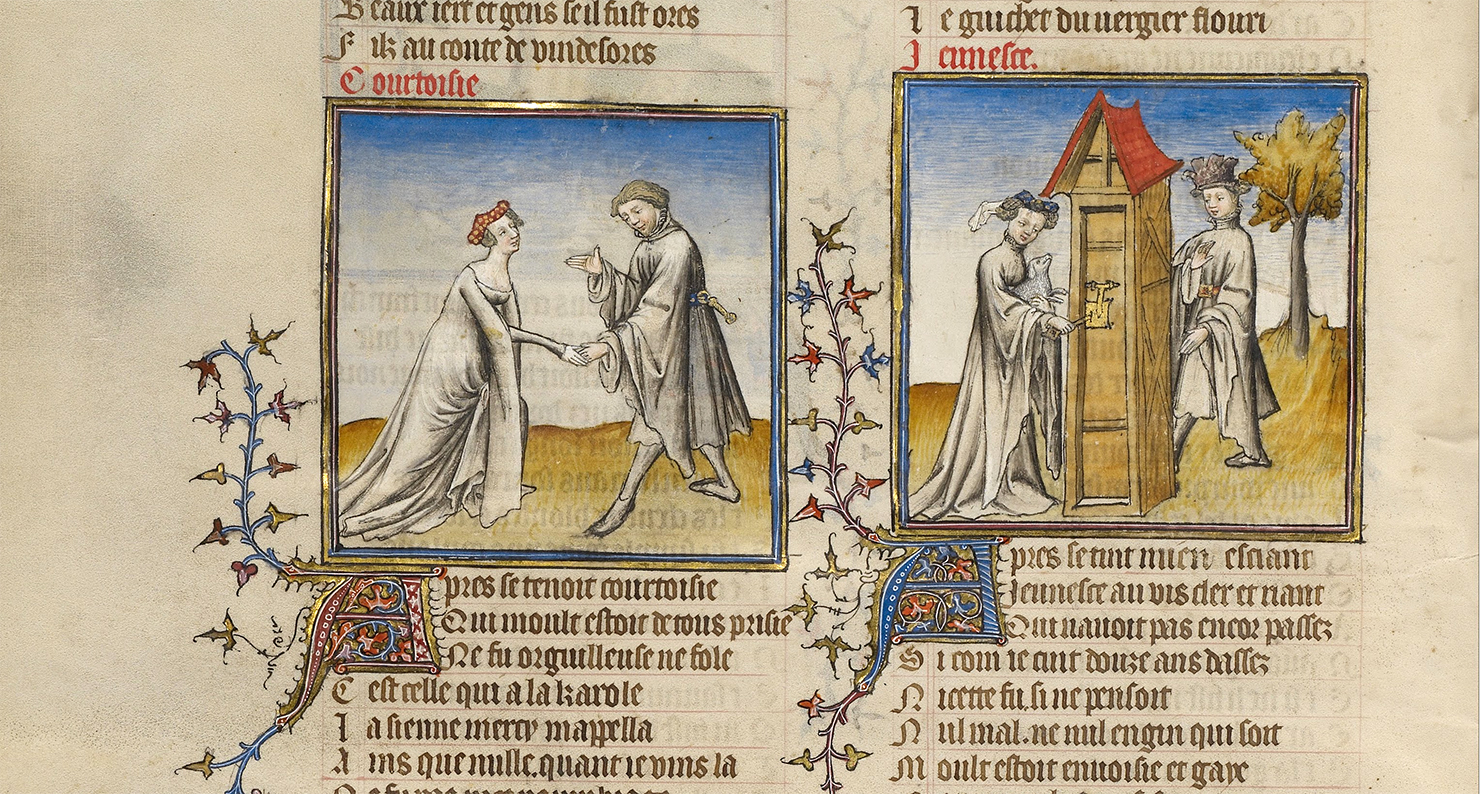 Beaux iert et gens se il fust ores
Filz au conte de vindesores
Courtoisie
Apres se tenoit courtoisie
Qui moult estoit de tous prisie
Ne fu orguilleuse ne fole
C est celle qui a la karole
La sienne mercy mappella
Ains que nulle. quant ie vins la
Le guichet du vergier flouri
Jeunesce.
Apres se tint mien esciant
Jeunesce au vis cler et riant
Qui nauoit pas encor passez
Si com ie cuit douze ans dassez
Nicette fu. si ne pensoit
Nul mal. ne nul engin qui soit
Moult estoit enuoisie et gaye